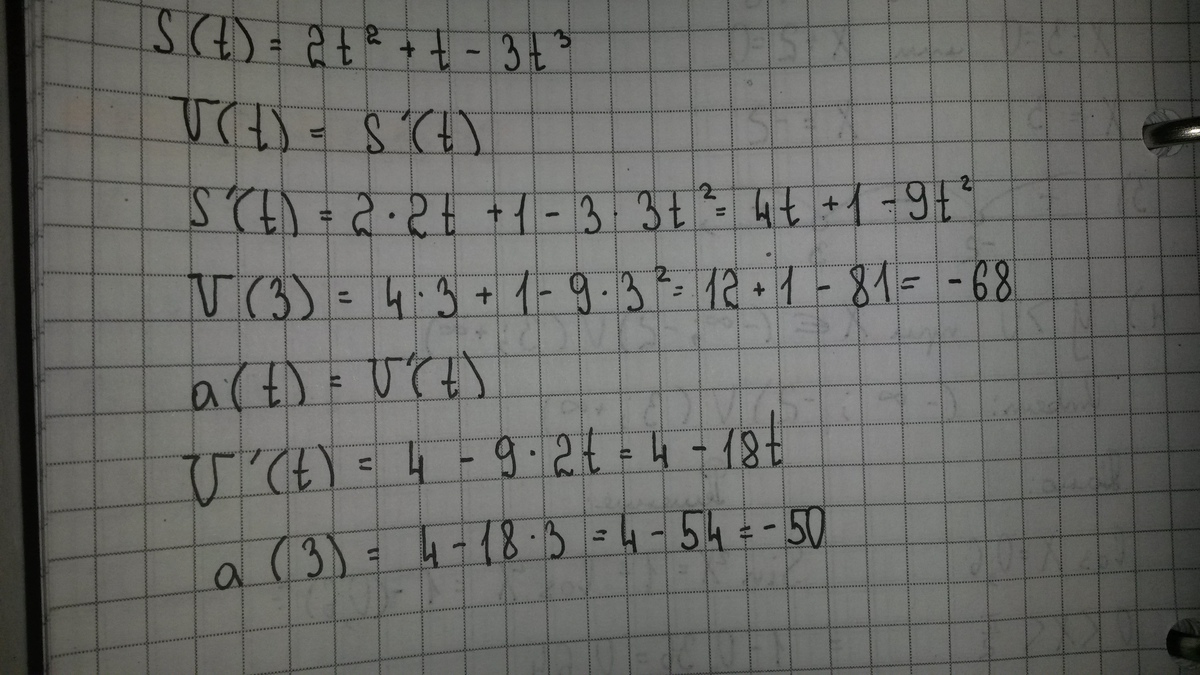 S(t) = 2t² + t - 3t³
V(t) = S'(t)
S'(t) = 2·2t + 1 - 3·3t² = 4t + 1 - 9t²
V(3) = 4·3 + 1 - 9·3² = 12 + 1 - 81 = -68
a(t) = V'(t)
V'(t) = 4 - 9·2t = 4 - 18t
a(3) = 4 - 18·3 = 4 - 54 = -50